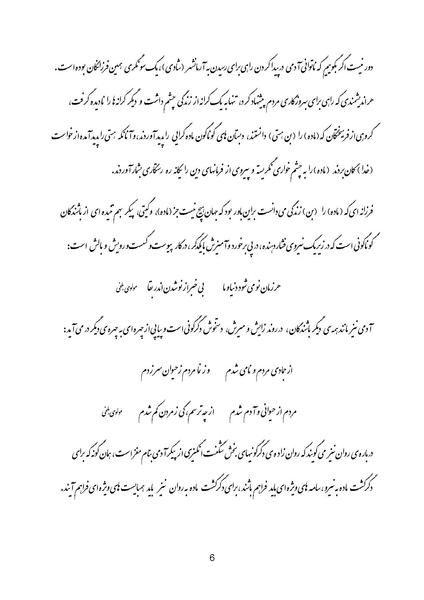 دور نیست اگر بگوییم که ناتوانی آدمی در پیدا کردن راهی برای رسیدن به آرمانشهر (شادی)، یک سو نگری همین فرزانگان بوده است.
هر اندیشمندی که راهی برای بهروزگاری مردم پیشنهاد کرد، تنها به یک کرانه از زندگی چشم داشت و دیگر کرانه ها را نادیده گرفت،
گروهی از فریختگان که (ماده) را (بن هستی) دانستند، دبستان های گوناگون ماده گرایی را پدید آوردند، و آنانکه هستی را پدید آمده از خواست
(خدا) گمان بردند (ماده) را به چشم خواری نگریسته و پیروی از فرمانهای دین را یگانه ره رستگاری بشمار آوردند.
فرزانه ای که (ماده) را (بن) زندگی می دانست براین باور بود که جهان هیچ نیست جز (ماده)، و گیتی، پیکر بهم تنیده ای از باشندگان
گوناگونی است که در زیر یک نیروی فشار دهنده، در پی برخورد و آمیزش با یکدیگر، در کار پیوست و گسست و رویش و بالش است:
هر زمان نو می شود دنیا و ما بی خبر از نو شدن اندر بقا مولوی بلخی
آدمی نیز مانند همه ی دیگر باشندگان، در روند زایش و میرش، دستخوش دگرگونی است و پیاپی از چهره ای به چهره ی دیگر در می آید:
از جمادی مردم و نامی شدم وز نما مردم ز حیوان سر زدم
مردم از حیوانی و آدم شدم از چه ترسم، کی ز مردن کم شدم مولوی بلخی
درباره ی روان نیز می گویند که روان زاده ی دگرگونیهای بخش شگفت انگیزی از پیکر آدمی بنام مغز است، همان گونه که برای
دگرگشت ماده به نیرو، سامه های ویژه ای باید فراهم باشند، برای دگرگشت ماده به روان نیز باید همبایست های ویژه ای فراهم آیند.
6